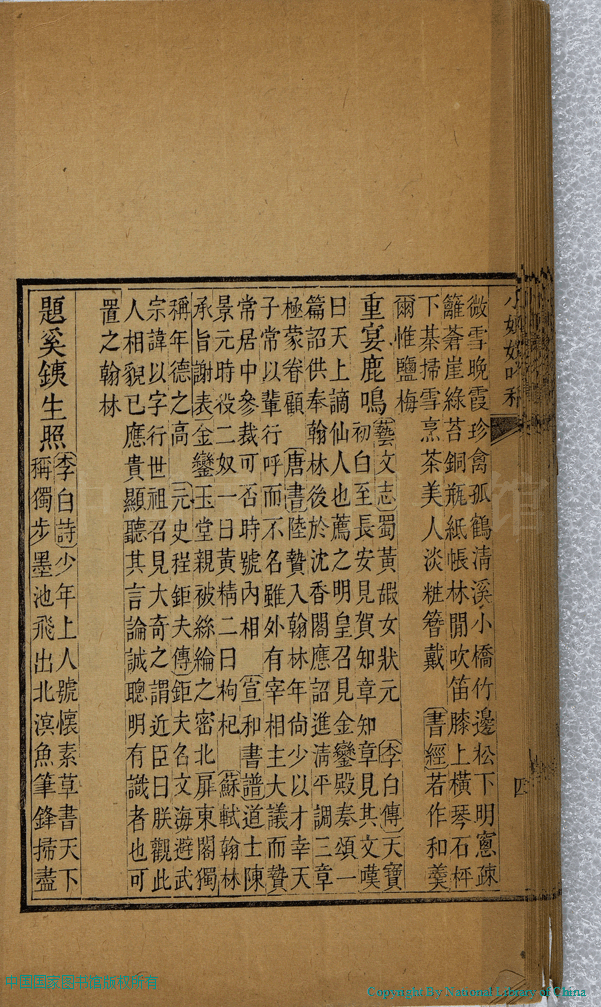 微雪晚霞珍禽孤鶴清溪小橋竹邊松下明窻疎
籬蒼崖綠苔銅瓶紙帳林閒吹笛膝上橫琴石枰
下棊掃雪烹茶美人淡粧簪戴 書經 若作和羹
爾惟鹽梅
重宴鹿鳴
藝文志 蜀黃嘏女狀元 李白傳 天寶
初白至長安見賀知章知章見其文嘆
曰天上謫仙人也薦之明皇召見金鑾殿奏頌一
篇詔供奉翰林後於沈香閣應詔進淸平調三章
極蒙眷顧 唐書 陸贄入翰林年尙少以才幸天
子常以輩行呼而不名雖外有宰相主大議而贄
常居中參裁可否時號內相 宣和書譜 道士陳
景元時役二奴一曰黃精二曰枸杞 蘇軾翰林
承旨謝表金鑾玉堂親被絲綸之密北扉東閣獨
稱年德之高 元史程鉅夫傳 鉅夫名文海避武
宗諱以字行世祖召見大奇之謂近臣曰朕觀此
人相貌已應貴顯聽其言論誠聰明有識者也可
置之翰林
題奚銕生照
李白詩 少年上人號懷素草書天下
稱獨步墨池飛出北溟魚筆鋒掃盡
四
Copyright By National Library of China